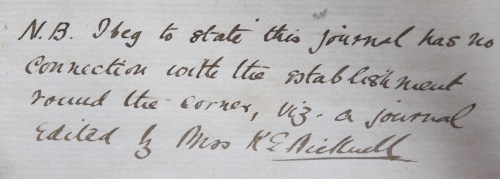 N.B. I beg to state this journal has no
connection with the establishment
round the corner, viz. a journal
edited by Miss K E Bicknell